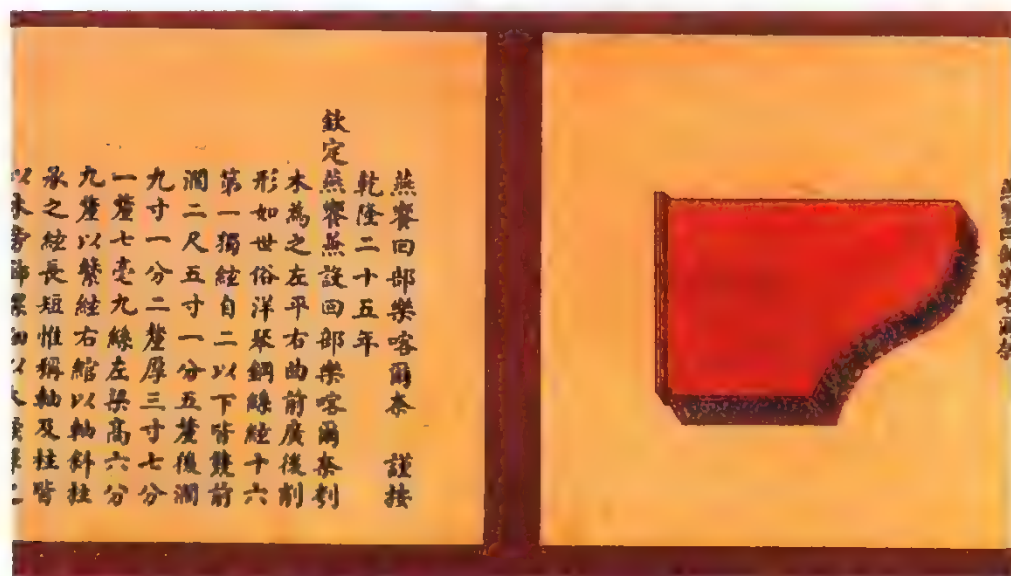 燕饗回部樂喀爾奈
燕饗回部樂喀爾奈 謹按
乾隆二十五年
欽定燕饗燕設回部樂喀爾奈刳
木為之左平右曲前廣後削
形如世俗洋琴鋼絲絃十六
第一獨絃自二以下皆雙前
濶二尺五寸一分五釐後濶
九寸一分二釐厚三寸七分
一釐七毫九絲左梁高六分
九釐以繫絃右綰以軸斜柱
承之絃長短惟稱軸及柱皆
以木旁飾螺鈿以木